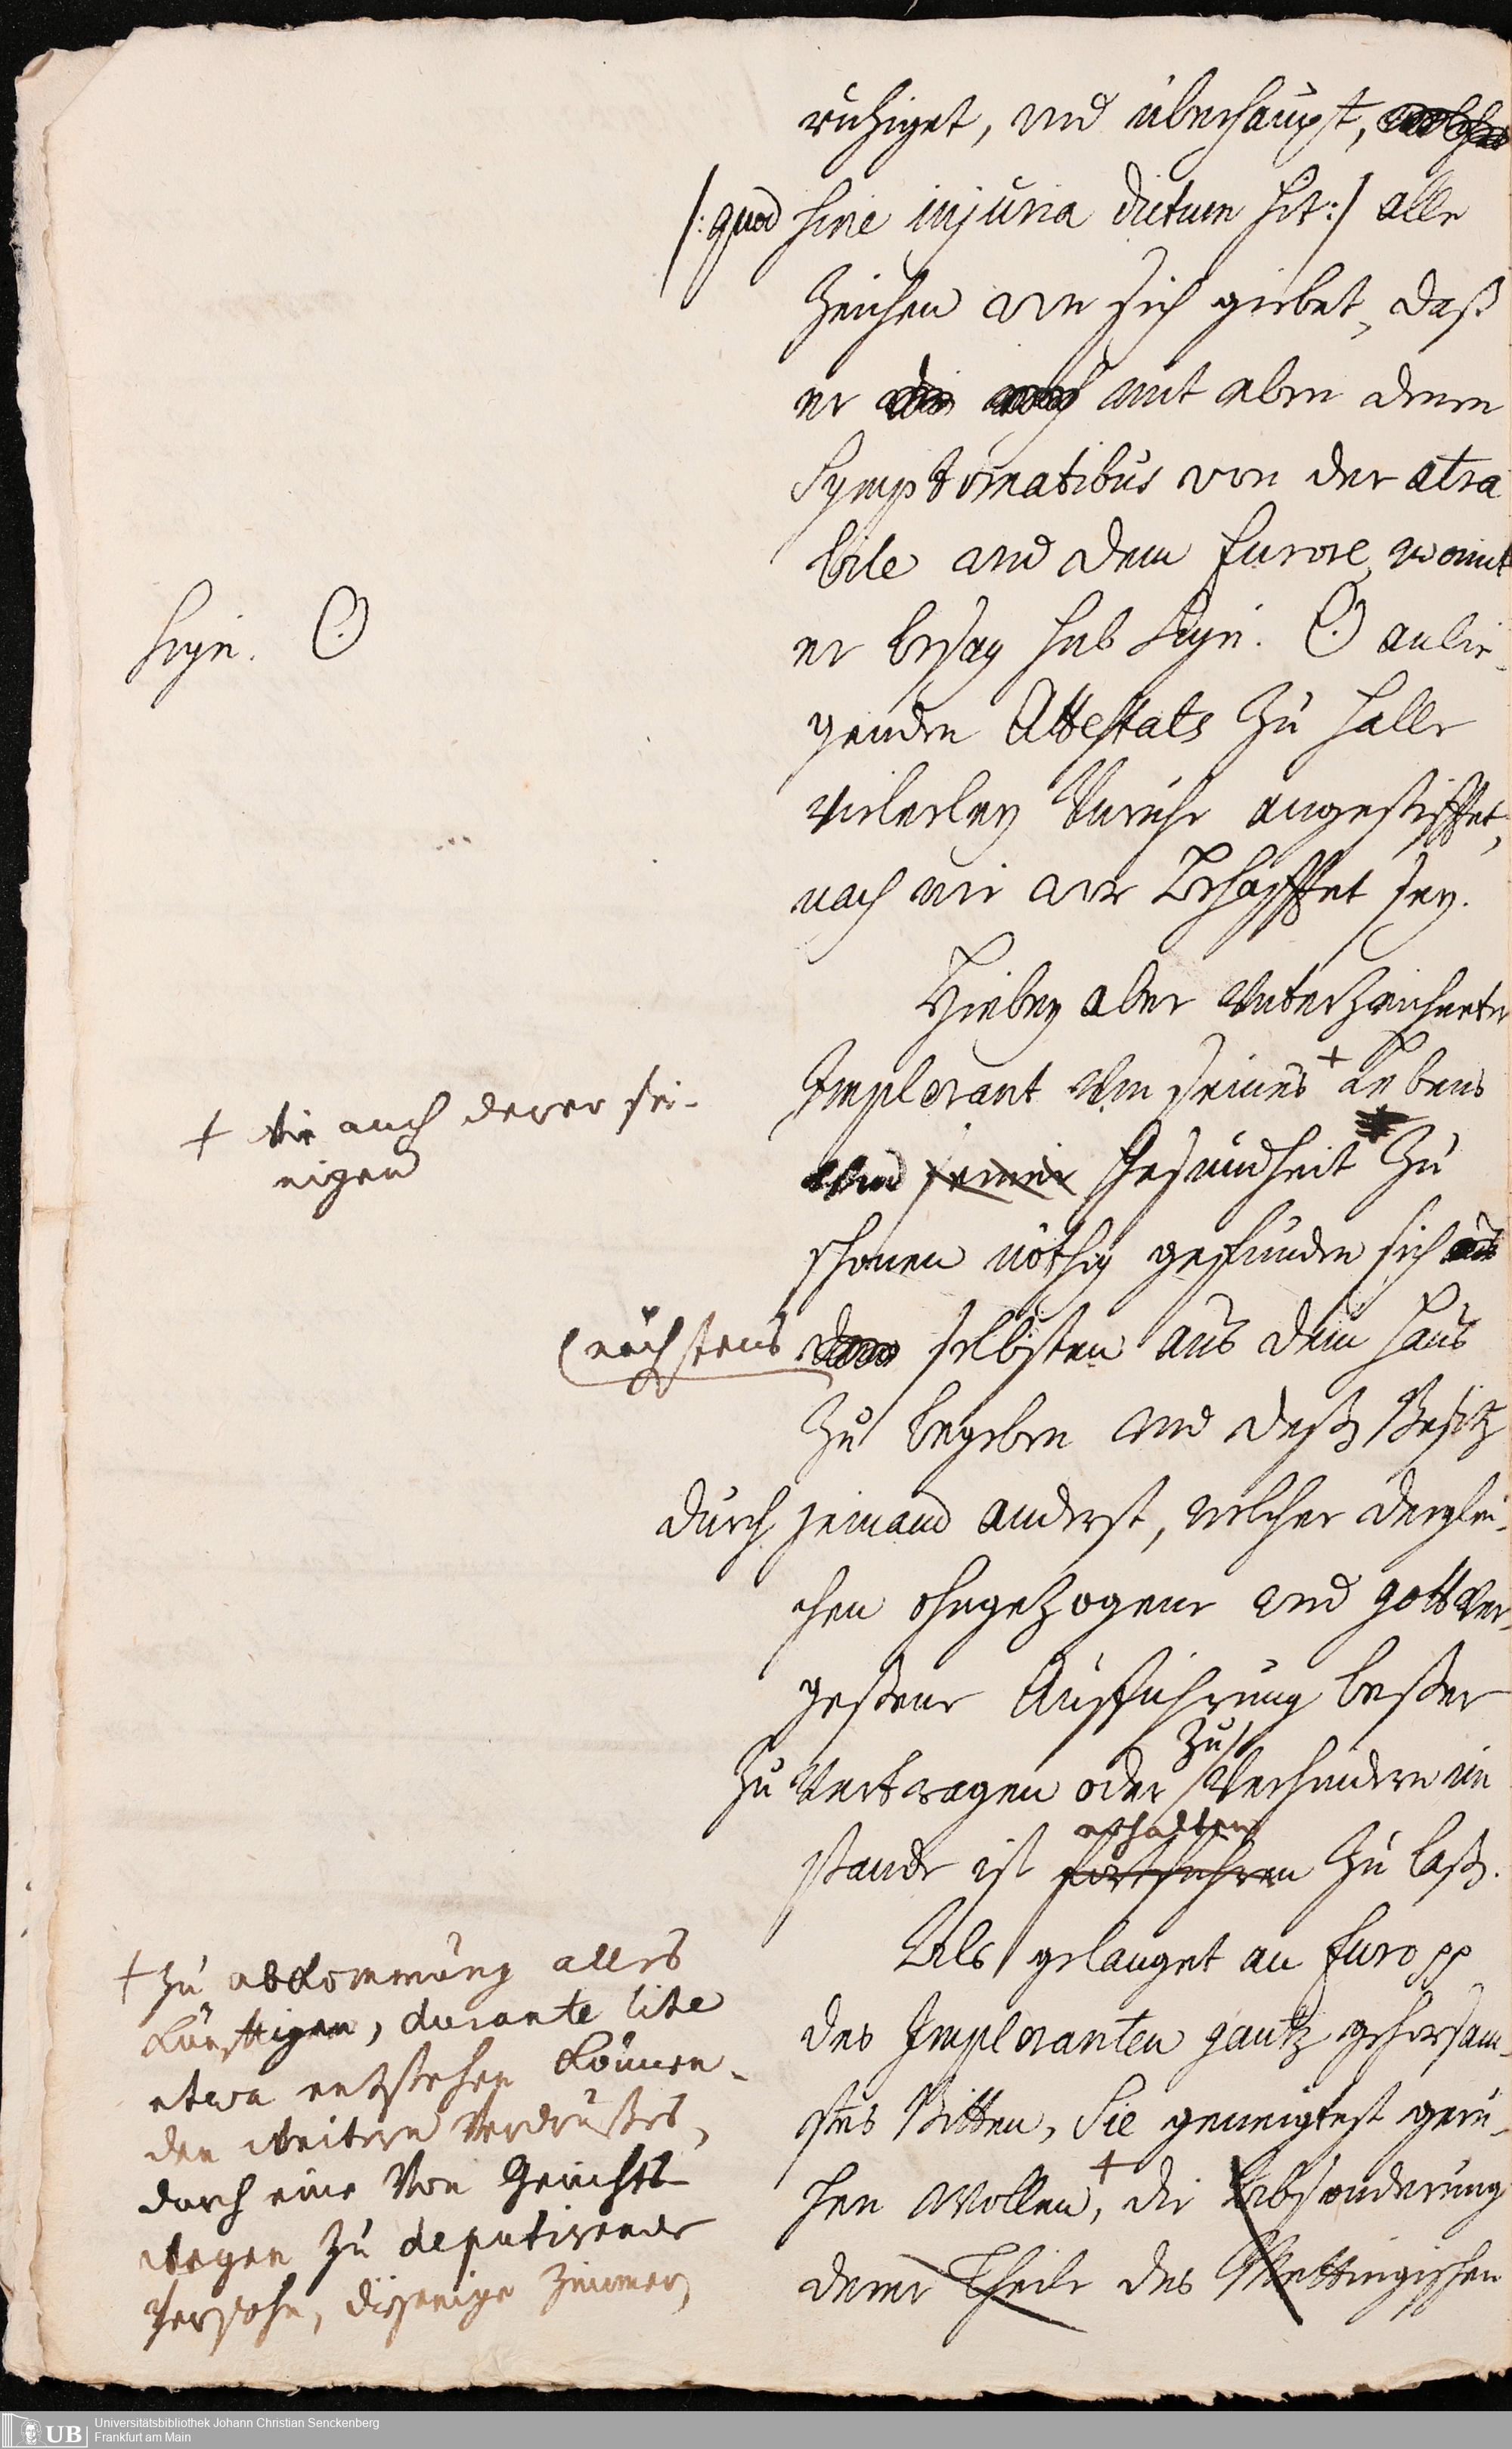 ruhiget, und überhaupt,
/: quod sine injuria dictum sit :/ alle
Zeichen von sich giebet, daß
er mit eben denen
Symptomatibus von der atra
bile und dem furore, womit
er besag sub Sign. ☉ anlie-
Sign. ☉
genden Attestats zu Halle
vielerley Unruhe angestifftet,
noch wie vor behafftet sey.
Hiebey aber Unterzeichneter
Implorant um seines + Lebens
+ wie auch derer sei-
nigen
und seiner Gesundheit zu
schonen nöthig gefunden sich
nächstens selbsten aus dem Haus
zu begeben und deßen Besitz
durch jemand anderst, welcher derglei-
chen ohngezogene und gottver-
geßene Aufführung beßer
zu Vertragen oder zu Verhindern im
stande ist fortführen erhalten zu laßen.
Als gelanget an Euro pp
des Imploranten gantz gehorsam-
stes Bitten, Sie geneigtest geru-
hen wollen, + die Absonderung
derer Theile des Mettingischen
+ zu abkommung alles
künfftigen, durante lite
etwa entstehen können-
den weitern Verdrußes,
durch eine Von Gerichts
wegen zu deputirende
Persohn, diejenige Zimmer,
Universitätsbibliothek Johann Christian Senckenberg
Frankfurt am Main
UB